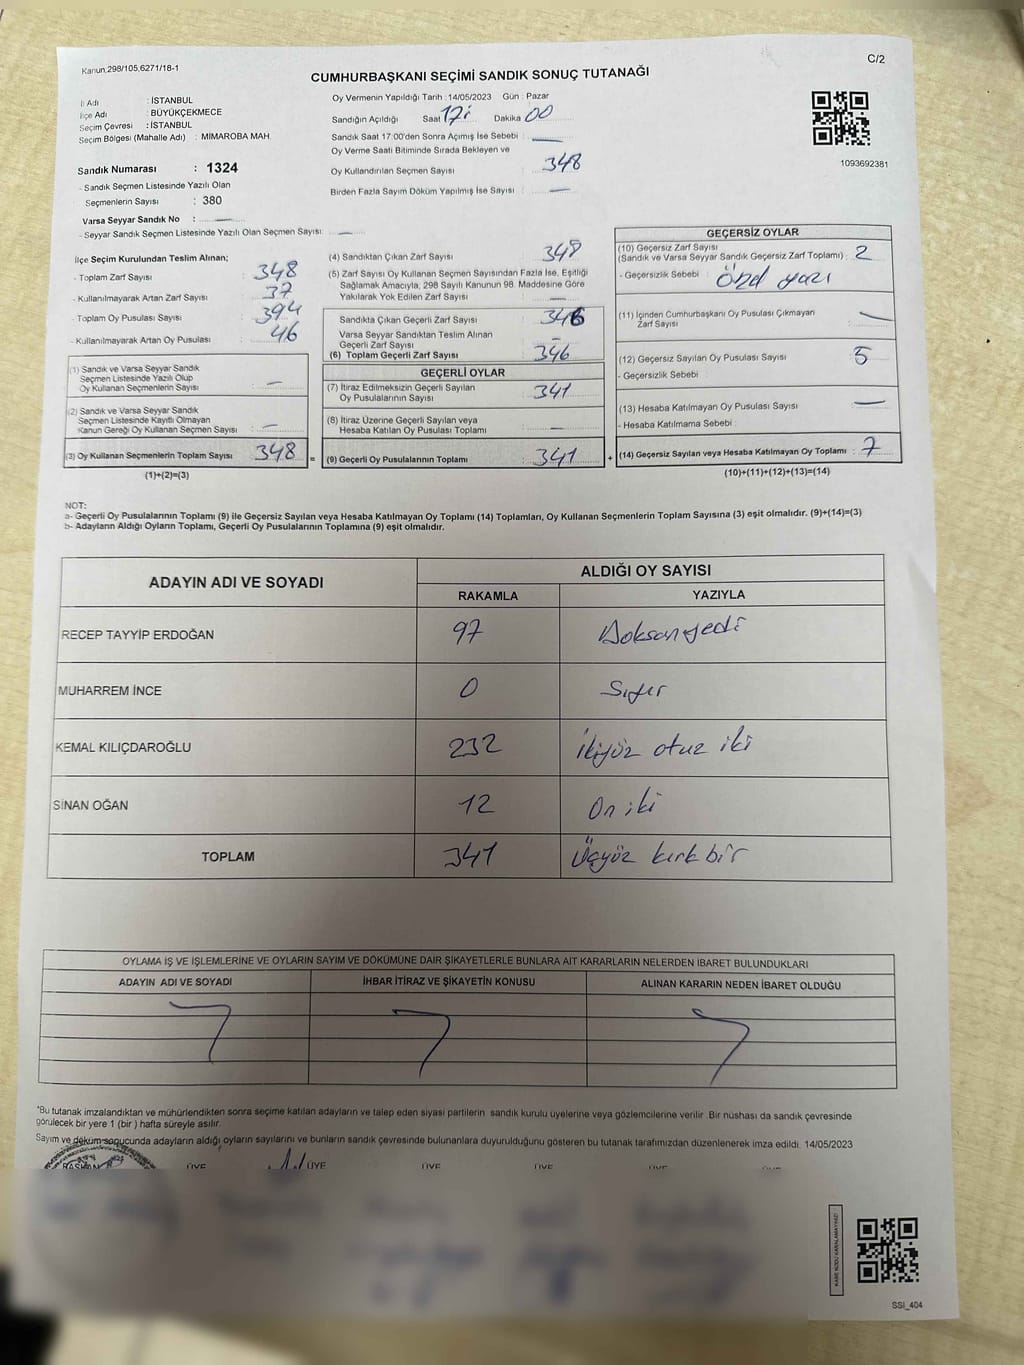 Kanun,298/105,6271/18-1
C/2
CUMHURBAŞKANI SEÇİMİ SANDIK SONUÇ TUTANAĞI
İl Adı : İSTANBUL
İlçe Adı : BÜYÜKÇEKMECE
Seçim Çevresi : İSTANBUL
Seçim Bölgesi (Mahalle Adı) : MİMAROBA MAH.
Sandık Numarası : 1324
- Sandık Seçmen Listesinde Yazılı Olan
Seçmenlerin Sayısı : 380
Varsa Seyyar Sandık No :
- Seyyar Sandık Seçmen Listesinde Yazılı Olan Seçmen Sayısı:
Oy Vermenin Yapıldığı Tarih : 14/05/2023 Gün : Pazar
Sandığın Açıldığı Saat 17: Dakika 00
Sandık Saat 17:00'den Sonra Açımış İse Sebebi :
Oy Verme Saati Bitiminde Sırada Bekleyen ve
Oy Kullandırılan Seçmen Sayısı : 348
Birden Fazla Sayım Döküm Yapılmış İse Sayısı :
1093692381
İlçe Seçim Kurulundan Teslim Alınan;
- Toplam Zarf Sayısı : 348
- Kullanılmayarak Artan Zarf Sayısı : 37
- Toplam Oy Pusulası Sayısı : 394
- Kullanılmayarak Artan Oy Pusulası : 46
(1) Sandık ve Varsa Seyyar Sandık
Seçmen Listesinde Yazılı Olup
Oy Kullanan Seçmenlerin Sayısı : -
(2) Sandık ve Varsa Seyyar Sandık
Seçmen Listesinde Kayıtlı Olmayan
Kanun Gereği Oy Kullanan Seçmen Sayısı : -
(3) Oy Kullanan Seçmenlerin Toplam Sayısı : 348
(1)+(2)=(3)
(4) Sandıktan Çıkan Zarf Sayısı : 348
(5) Zarf Sayısı Oy Kullanan Seçmen Sayısından Fazla İse, Eşitliği
Sağlamak Amacıyla, 298 Sayılı Kanunun 98. Maddesine Göre
Yakılarak Yok Edilen Zarf Sayısı :
Sandıkta Çıkan Geçerli Zarf Sayısı : 346
Varsa Seyyar Sandıktan Teslim Alınan
Geçerli Zarf Sayısı : -
(6) Toplam Geçerli Zarf Sayısı : 346
GEÇERLİ OYLAR
(7) İtiraz Edilmeksizin Geçerli Sayılan
Oy Pusulalarının Sayısı : 341
(8) İtiraz Üzerine Geçerli Sayılan veya
Hesaba Katılan Oy Pusulası Toplamı : -
= (9) Geçerli Oy Pusulalarının Toplamı : 341
GEÇERSİZ OYLAR
(10) Geçersiz Zarf Sayısı
(Sandık ve Varsa Seyyar Sandık Geçersiz Zarf Toplamı) : 2
- Geçersizlik Sebebi : özel yazı
(11) İçinden Cumhurbaşkanı Oy Pusulası Çıkmayan
Zarf Sayısı : -
(12) Geçersiz Sayılan Oy Pusulası Sayısı : 5
- Geçersizlik Sebebi :
(13) Hesaba Katılmayan Oy Pusulası Sayısı : -
- Hesaba Katılmama Sebebi :
+ (14) Geçersiz Sayılan veya Hesaba Katılmayan Oy Toplamı : 7
(10)+(11)+(12)+(13)=(14)
NOT:
a- Geçerli Oy Pusulalarının Toplamı (9) ile Geçersiz Sayılan veya Hesaba Katılmayan Oy Toplamı (14) Toplamları, Oy Kullanan Seçmenlerin Toplam Sayısına (3) eşit olmalıdır. (9)+(14)=(3)
b- Adayların Aldığı Oyların Toplamı, Geçerli Oy Pusulalarının Toplamına (9) eşit olmalıdır.
ADAYIN ADI VE SOYADI ALDIĞI OY SAYISI
RAKAMLA YAZIYLA
RECEP TAYYİP ERDOĞAN 97 Doksanyedi
MUHARREM İNCE 0 Sıfır
KEMAL KILIÇDAROĞLU 232 İkiyüz otuz iki
SİNAN OĞAN 12 On iki
TOPLAM 341 Üçyüz kırk bir
OYLAMA İŞ VE İŞLEMLERİNE VE OYLARIN SAYIM VE DÖKÜMÜNE DAİR ŞİKAYETLERLE BUNLARA AİT KARARLARIN NELERDEN İBARET BULUNDUKLARI
ADAYIN ADI VE SOYADI İHBAR İTİRAZ VE ŞİKAYETİN KONUSU ALINAN KARARIN NEDEN İBARET OLDUĞU
*Bu tutanak imzalandıktan ve mühürlendikten sonra seçime katılan adayların ve talep eden siyasi partilerin sandık kurulu üyelerine veya gözlemcilerine verilir. Bir nüshası da sandık çevresinde
görülecek bir yere 1 (bir ) hafta süreyle asılır.
Sayım ve döküm sonucunda adayların aldığı oyların sayılarını ve bunların sandık çevresinde bulunanlara duyurulduğunu gösteren bu tutanak tarafımızdan düzenlenerek imza edildi. 14/05/2023
BAŞKAN ÜYE ÜYE ÜYE ÜYE ÜYE ÜYE
KARE KODU KARALAMAYINIZ!
SSİ_404